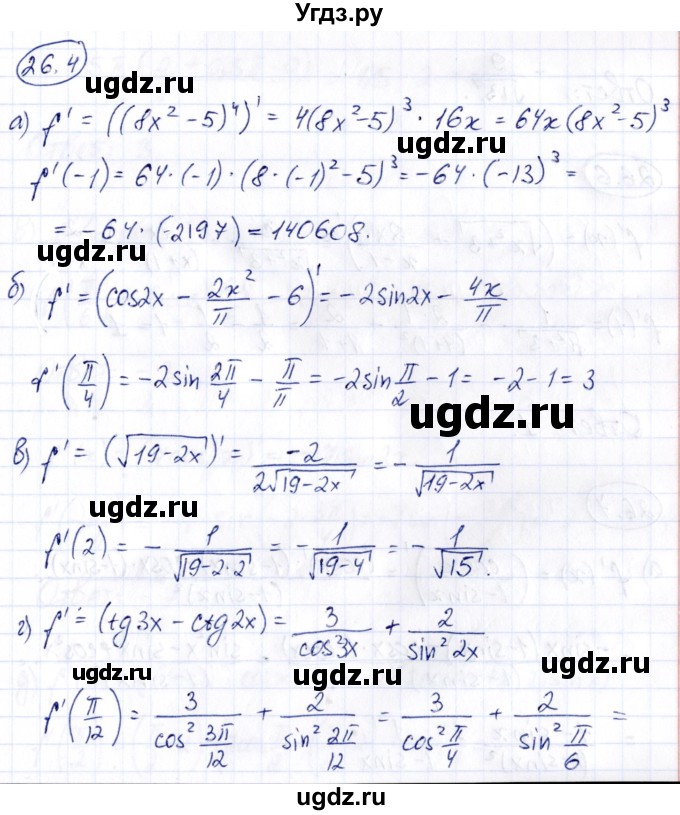 Угдз.ру
26.4
ugdz.ru
а) f' = ((8x² - 5)⁴)' = 4(8x² - 5)³ · 16x = 64x(8x² - 5)³
ugdz.ru
f'(-1) = 64 · (-1) · (8 · (-1)² - 5)³ = -64 · (-13)³ =
= -64 · (-2197) = 140608.
ugdz.ru
ugdz.ru
б) f' = (cos2x - 2x²/π - 6)' = -2sin2x - 4x/π
f'(π/4) = -2sin 2π/4 - π/π = -2sin π/2 - 1 = -2 - 1 = 3
ugdz.ru
в) f' = (√(19-2x))' = -2/(2√(19-2x)) = - 1/√(19-2x)
ugdz.ru
f'(2) = - 1/√(19-2·2) = - 1/√(19-4) = - 1/√15.
г) f' = (tg3x - ctg2x) = 3/cos²3x + 2/sin²2x
ugdz.ru
ugdz.ru
ugdz.ru
f'(π/12) = 3/(cos² 3π/12) + 2/(sin² 2π/12) = 3/(cos² π/4) + 2/(sin² π/6) =
ugdz.ru